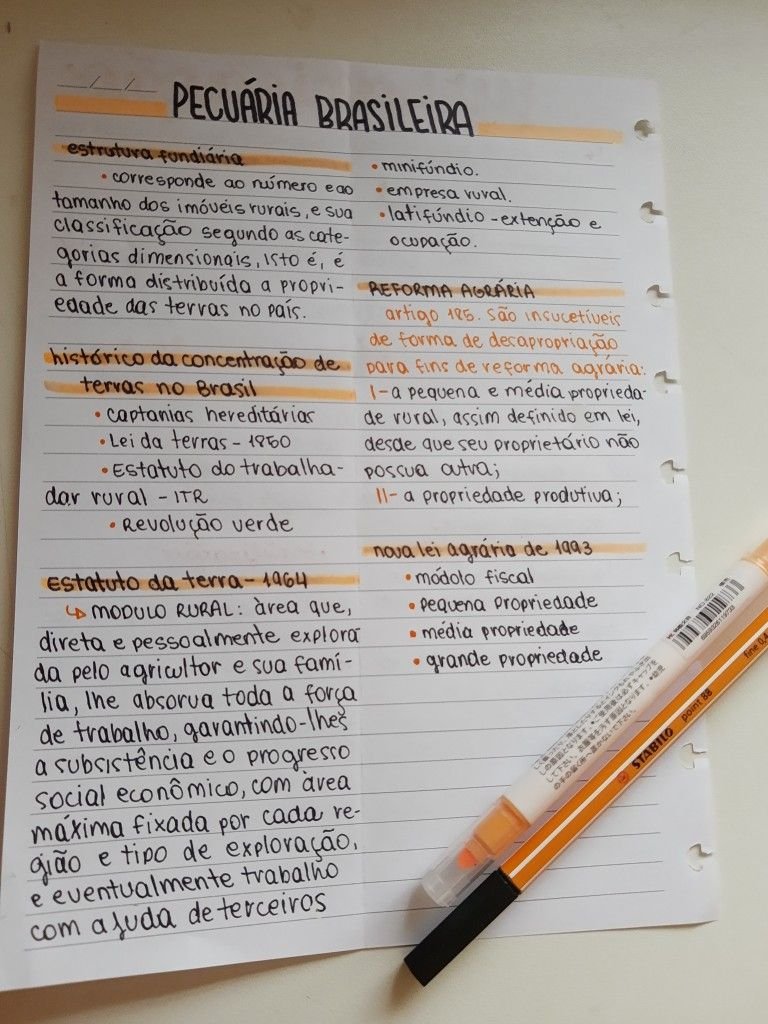 PECUÁRIA BRASILEIRA
estrutura fundiária
• corresponde ao número e ao
tamanho dos imóveis rurais, e sua
classificação segundo as cate-
gorias dimensionais, isto é, é
a forma distribuída a propri-
edade das terras no país.
histórico da concentração de
terras no Brasil
• captanias hereditárias
• Lei da terras - 1850
• Estatuto do trabalha-
dor rural - ITR
• Revolução verde
Estatuto da terra - 1964
↳ MODULO RURAL: àrea que,
direta e pessoalmente explora
da pelo agricultor e sua famí-
lia, lhe absorva toda a força
de trabalho, garantindo-lhes
a subsistência e o progresso
social econômico, com àrea
máxima fixada por cada re-
gião e tipo de exploração,
e eventualmente trabalho
com ajuda de terceiros
• minifúndio.
• empresa rural.
• latifúndio - extenção e
ocupação.
REFORMA AGRÁRIA
artigo 185. São insucetíveis
de forma de desapropriação
para fins de reforma agrária:
I- a pequena e média proprieda-
de rural, assim definido em lei,
desde que seu proprietário não
possua outra;
II- a propriedade produtiva;
nova lei agrária de 1993
• módolo fiscal
• pequena propriedade
• média propriedade
• grande propriedade
STABILO point 88 fine 0,4